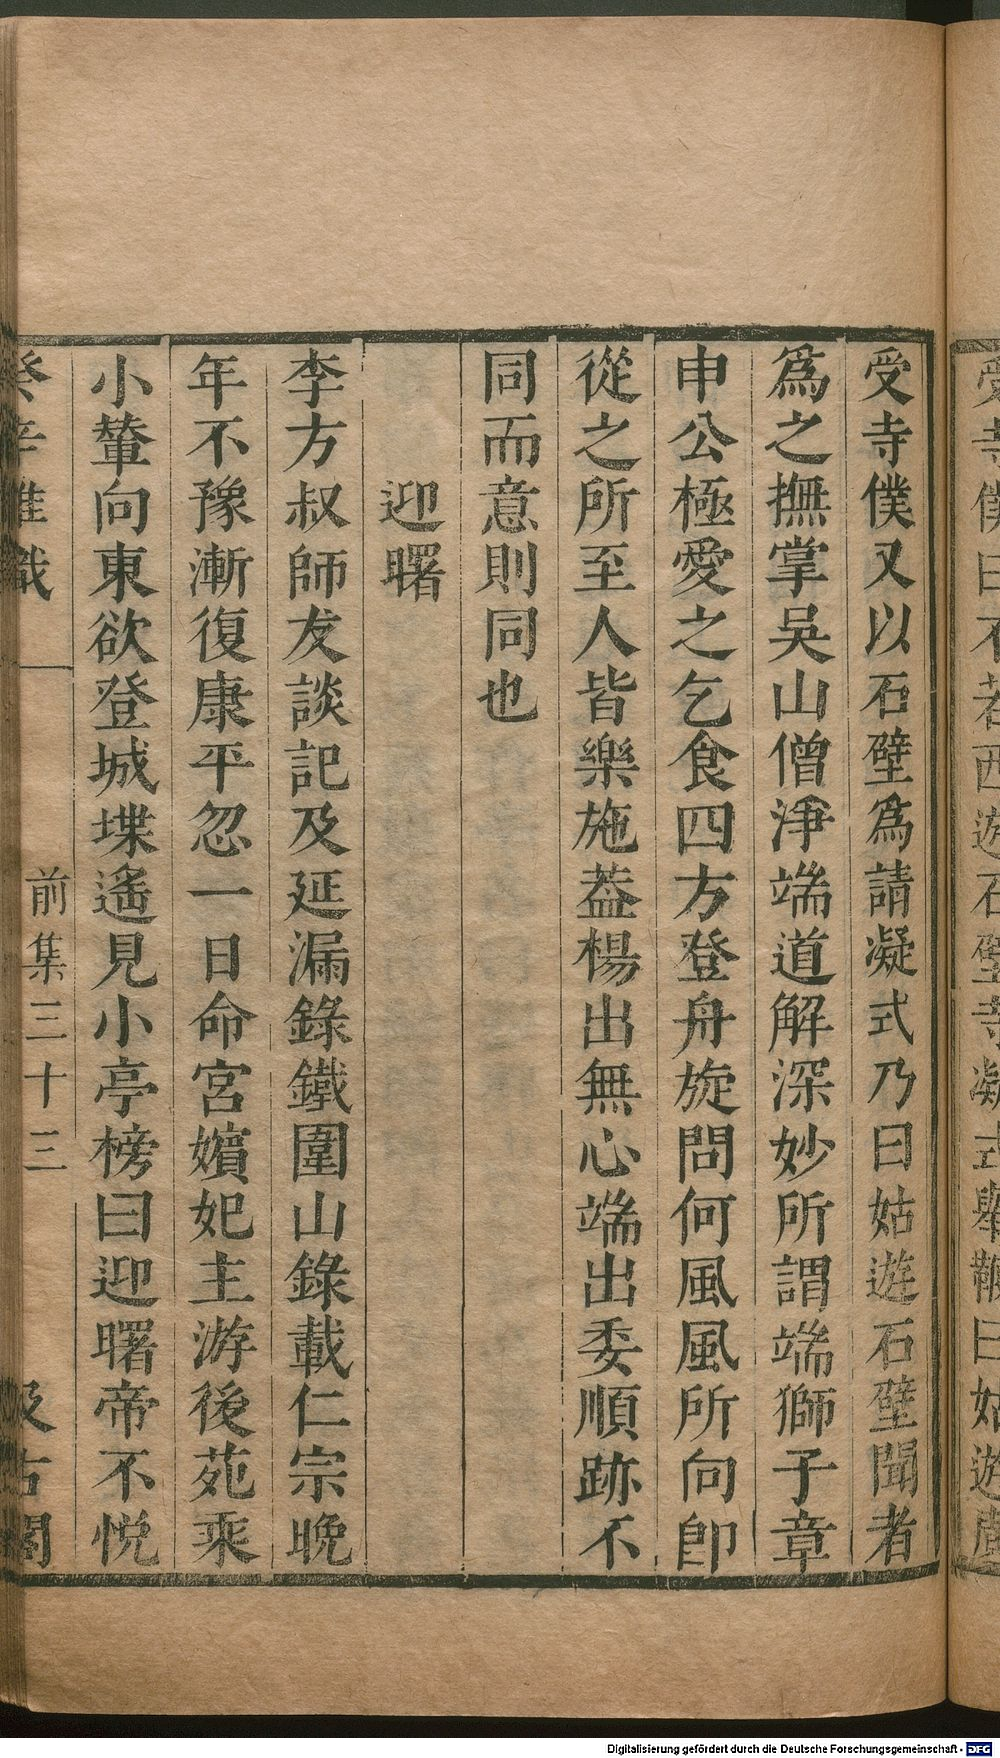 受寺僕又以石壁爲請凝式乃曰姑遊石壁聞者
爲之撫掌吳山僧淨端道解深妙所謂端獅子章
申公極愛之乞食四方登舟旋問何風風所向卽
從之所至人皆樂施葢楊出無心端出委順跡不
同而意則同也
迎曙
李方叔師友談記及延漏錄鐵圍山錄載仁宗晚
年不豫漸復康平忽一日命宮嬪妃主游後苑乘
小輦向東欲登城堞遙見小亭榜曰迎曙帝不悅
癸辛雜識 前集三十三 汲古閣
Digitalisierung gefördert durch die Deutsche Forschungsgemeinschaft - DFG